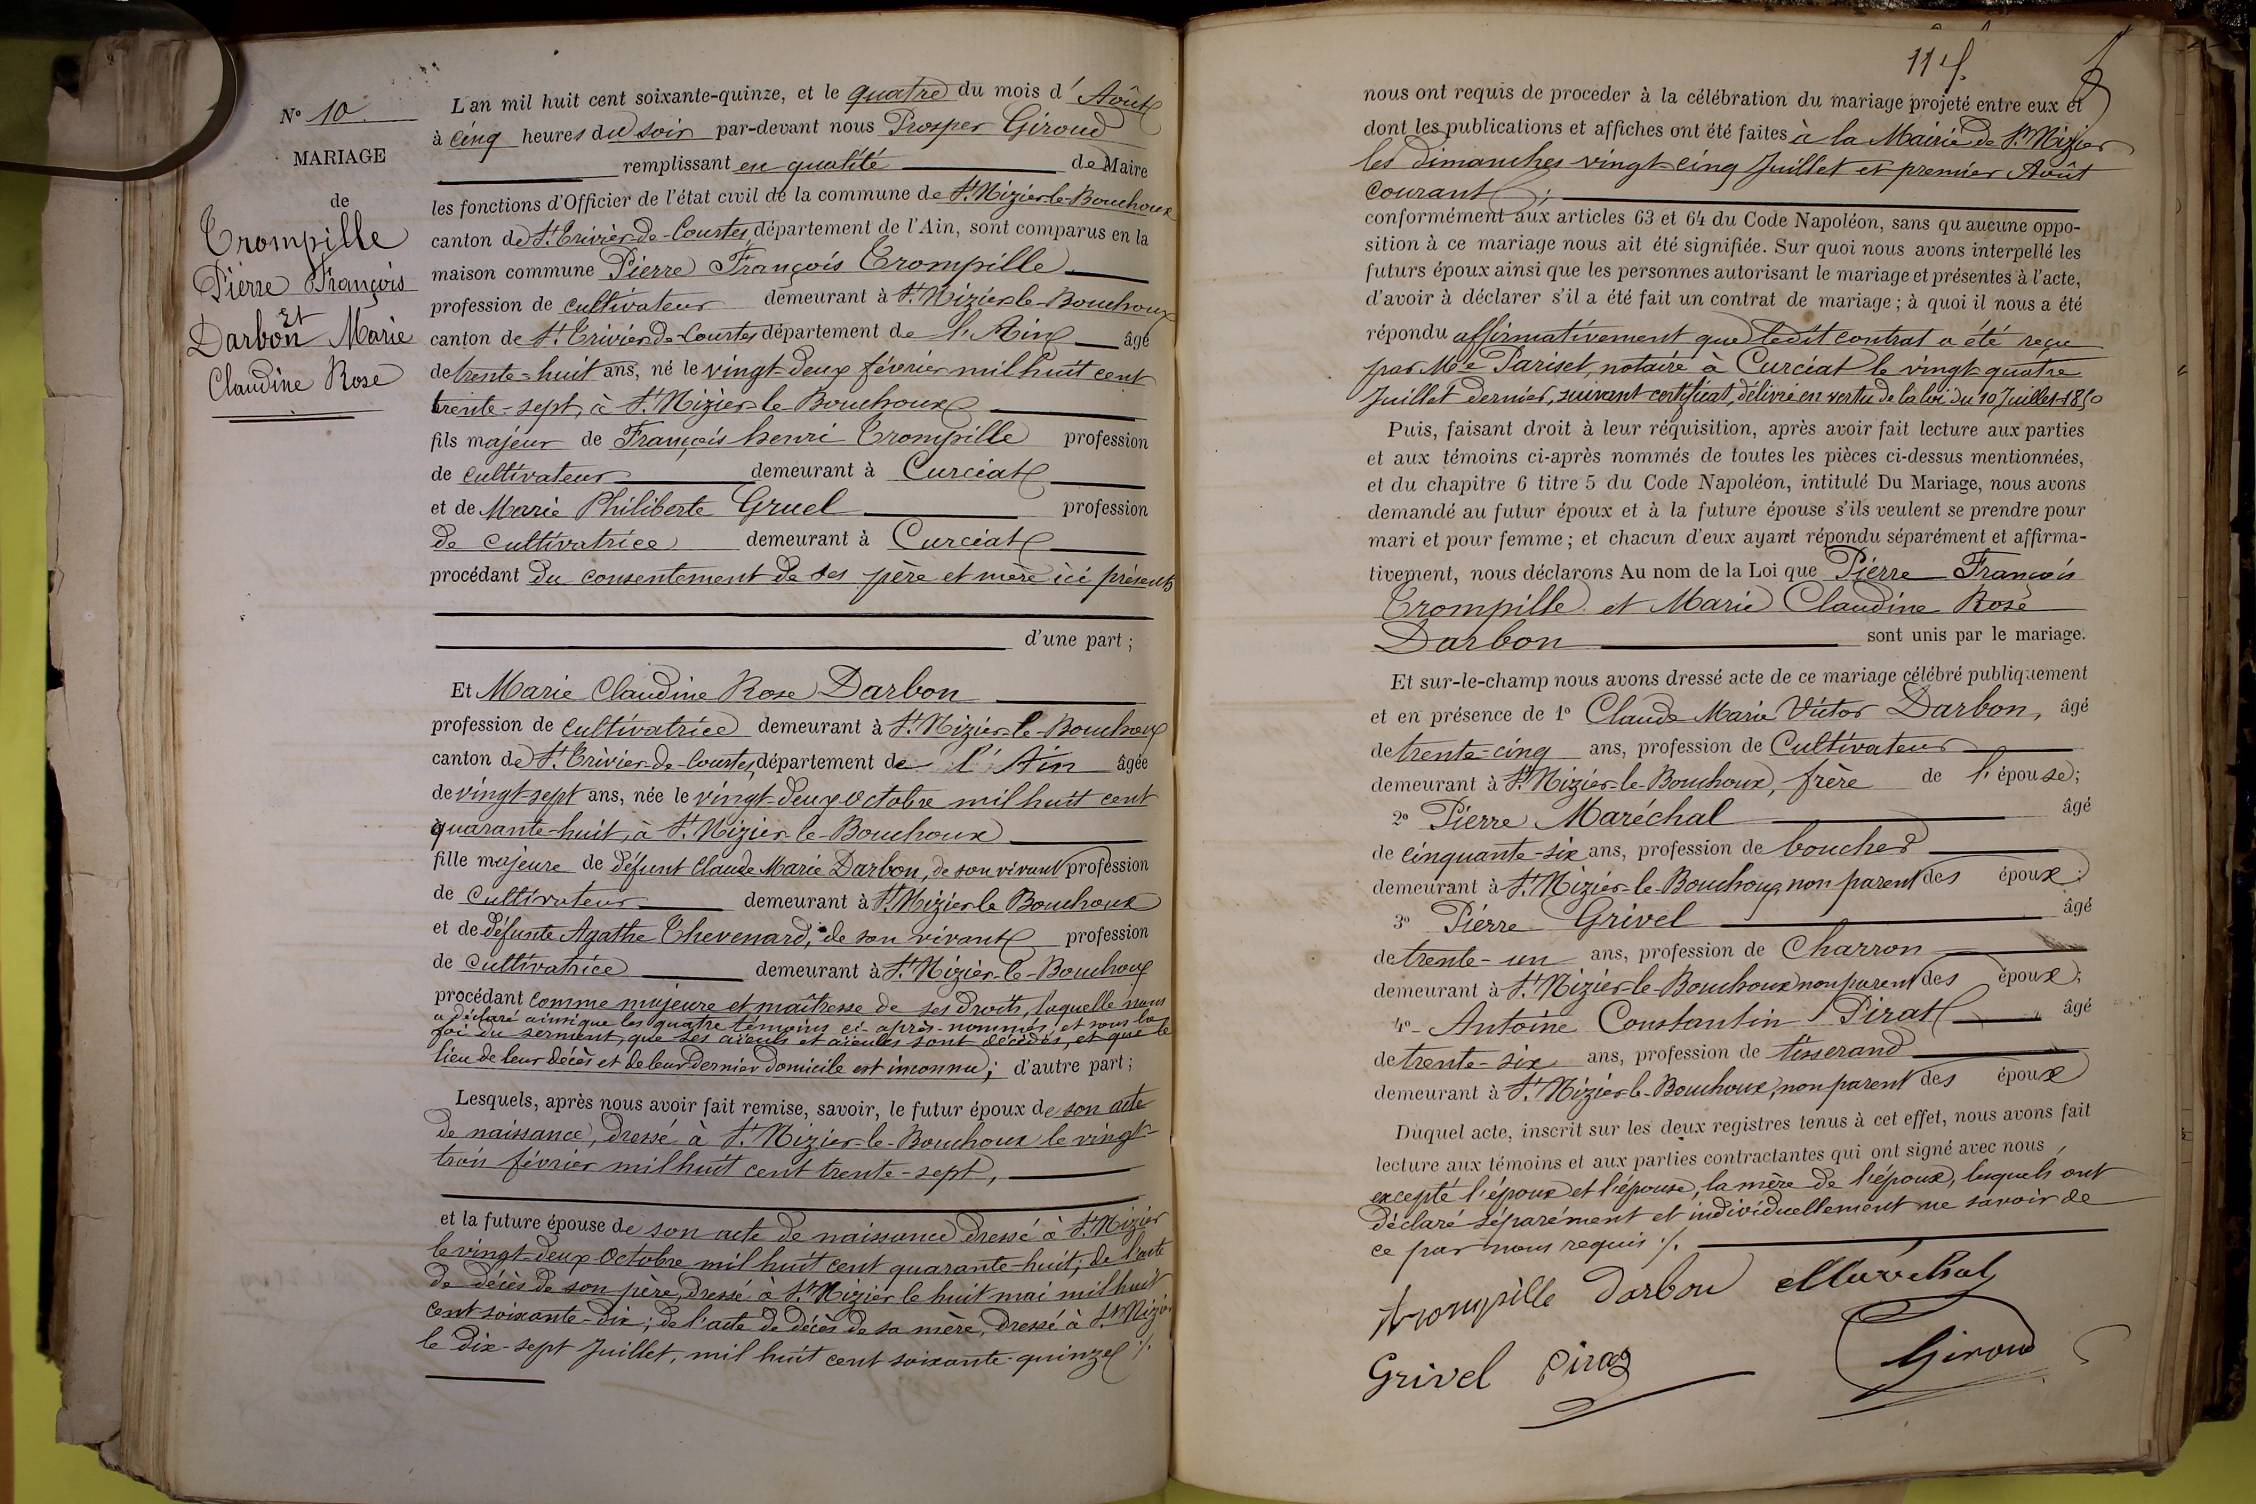 N° 10
MARIAGE
de
Trompille
Pierre François
et
Darbon Marie
Claudine Rose
L'an mil huit cent soixante-quinze, et le quatre du mois d' Août
à cinq heures du soir par-devant nous Prosper Giroud
remplissant en qualité de Maire
les fonctions d'Officier de l'état civil de la commune de St. Nizier-le-Bouchoux
canton de St. Trivier-de-Courtes département de l'Ain, sont comparus en la
maison commune Pierre François Trompille
profession de cultivateur demeurant à St. Nizier-le-Bouchoux
canton de St. Trivier-de-Courtes département de l'Ain âgé
de trente-huit ans, né le vingt-deux février mil huit cent
trente-sept, à St. Nizier-le-Bouchoux
fils majeur de François henri Trompille profession
de cultivateur demeurant à Curciat
et de Marie Philiberte Gruel profession
de cultivatrice demeurant à Curciat
procédant du consentement de ses père et mère ici présents
d'une part ;
Et Marie Claudine Rose Darbon
profession de cultivatrice demeurant à St. Nizier-le-Bouchoux
canton de St. Trivier-de-Courtes, département de l'Ain âgée
de vingt-sept ans, née le vingt-deux Octobre mil huit cent
quarante-huit, à St. Nizier-le-Bouchoux
fille majeure de défunt Claude Marie Darbon, de son vivant profession
de cultivateur demeurant à St. Nizier le Bouchoux
et de défunte Agathe Thevenard, de son vivant profession
de cultivatrice demeurant à St. Nizier-le-Bouchoux
procédant comme majeure et maîtresse de ses droits, laquelle nous
a déclaré ainsi que les quatre témoins ci-après-nommés, et sous la
foi du serment, que ses aïeuls et aïeules sont décédés, et que le
lieu de leur décès et de leur dernier domicile est inconnu ; d'autre part ;
Lesquels, après nous avoir fait remise, savoir, le futur époux de son acte
de naissance, dressé à St. Nizier-le-Bouchoux le vingt-
trois février mil huit cent trente-sept,
et la future épouse de son acte de naissance dressé à St. Nizier
le vingt-deux Octobre mil huit cent quarante-huit ; de l'acte
de décès de son père, dressé à St. Nizier le huit mai mil huit
cent soixante-dix ; de l'acte de décès de sa mère, dressé à St. Nizier
le dix-sept Juillet, mil huit cent soixante-quinze ./.
114
nous ont requis de proceder à la célébration du mariage projeté entre eux et
dont les publications et affiches ont été faites à la Mairie de St. Nizier
les dimanches vingt-cinq Juillet et premier Août
courant ;
conformément aux articles 63 et 64 du Code Napoléon, sans qu'aucune oppo-
sition à ce mariage nous ait été signifiée. Sur quoi nous avons interpellé les
futurs époux ainsi que les personnes autorisant le mariage et présentes à l'acte,
d'avoir à déclarer s'il a été fait un contrat de mariage ; à quoi il nous a été
répondu affirmativement que ledit contrat a été reçu
par Me Pariset, notaire à Curciat le vingt-quatre
Juillet dernier, suivant certificat, délivré en vertu de la loi du 10 Juillet 1850
Puis, faisant droit à leur réquisition, après avoir fait lecture aux parties
et aux témoins ci-après nommés de toutes les pièces ci-dessus mentionnées,
et du chapitre 6 titre 5 du Code Napoléon, intitulé Du Mariage, nous avons
demandé au futur époux et à la future épouse s'ils veulent se prendre pour
mari et pour femme ; et chacun d'eux ayant répondu séparément et affirma-
tivement, nous déclarons Au nom de la Loi que Pierre François
Trompille et Marie Claudine Rose
Darbon sont unis par le mariage.
Et sur-le-champ nous avons dressé acte de ce mariage célébré publiquement
et en présence de 1° Claude Marie Victor Darbon, âgé
de trente-cinq ans, profession de Cultivateur
demeurant à St. Nizier-le-Bouchoux, frère de l'épouse ;
2° Pierre Maréchal âgé
de cinquante-six ans, profession de boucher
demeurant à St. Nizier-le-Bouchoux non parent des époux ;
3° Pierre Grivel âgé
de trente-un ans, profession de Charron
demeurant à St. Nizier-le-Bouchoux non parent des époux ;
4° Antoine Constantin Pirat âgé
de trente-six ans, profession de tisserand
demeurant à St. Nizier-le-Bouchoux, non parent des époux
Duquel acte, inscrit sur les deux registres tenus à cet effet, nous avons fait
lecture aux témoins et aux parties contractantes qui ont signé avec nous,
excepté l'époux et l'épouse, la mère de l'époux, lesquels ont
déclaré séparément et individuellement ne savoir de
ce par nous requis ./.
trompille Darbon Maréchal
Grivel Pirat Giroud